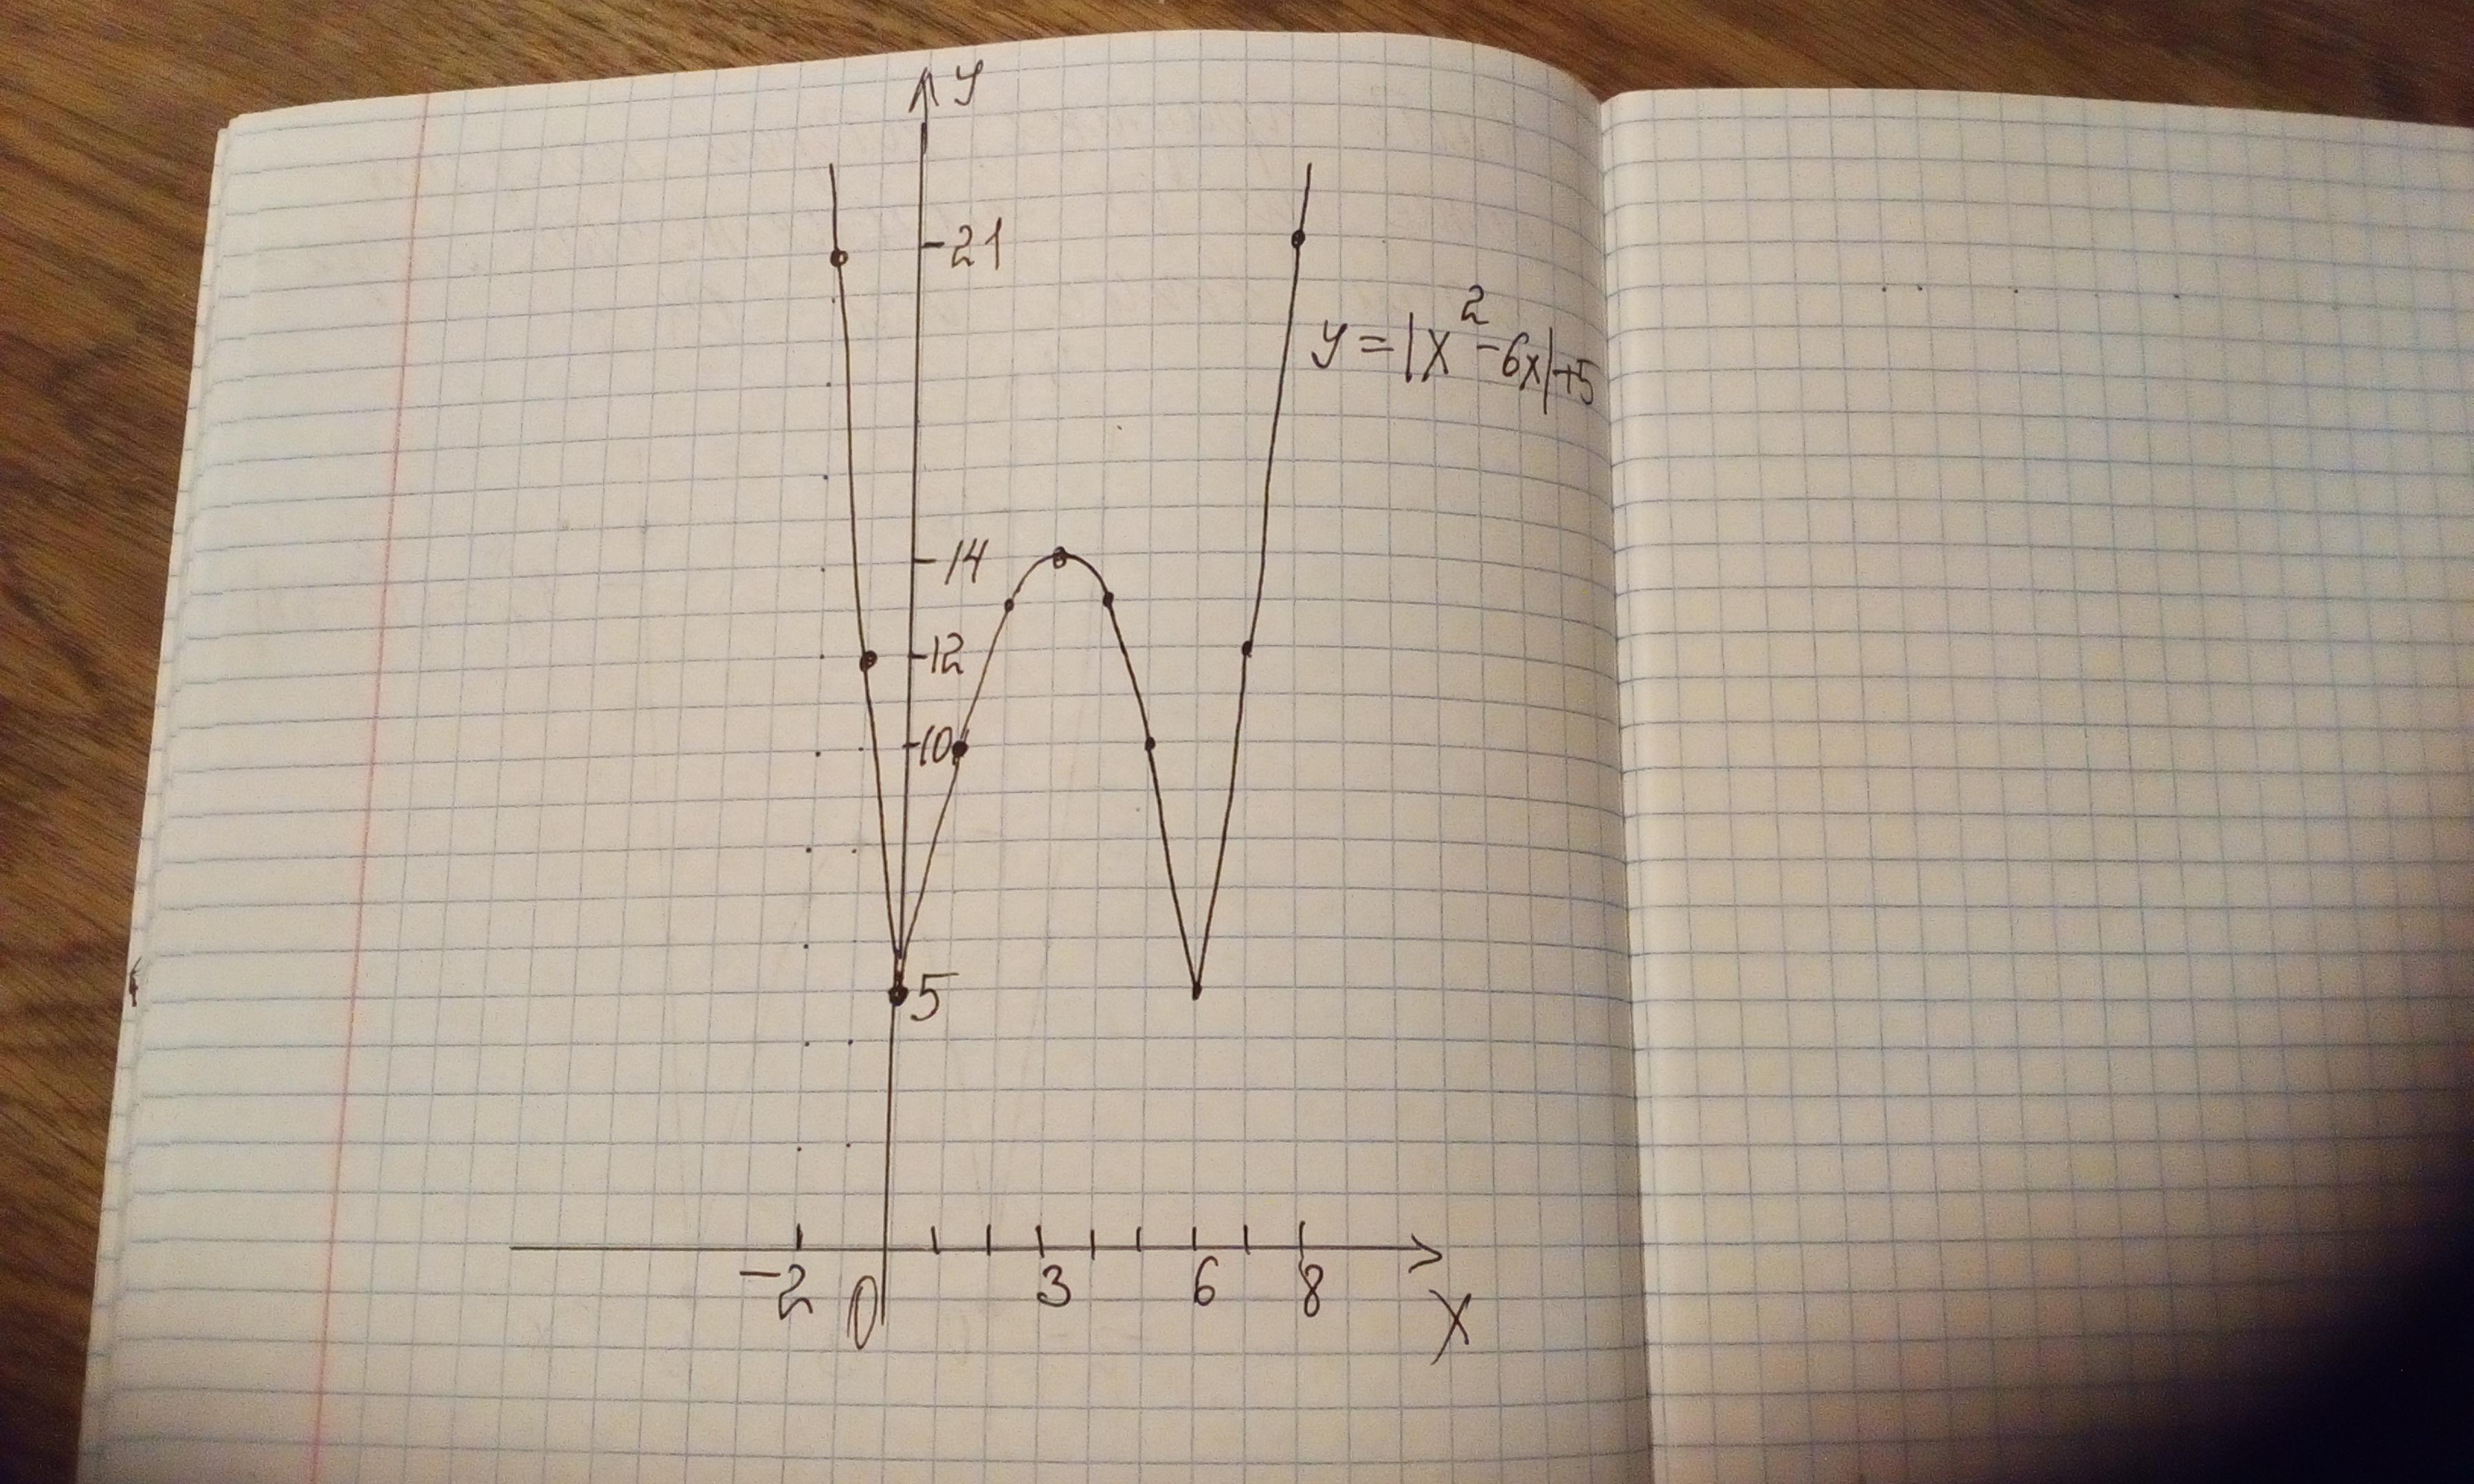 y
21
y=|x²-6x|+5
14
12
10
5
-2 0 3 6 8
x